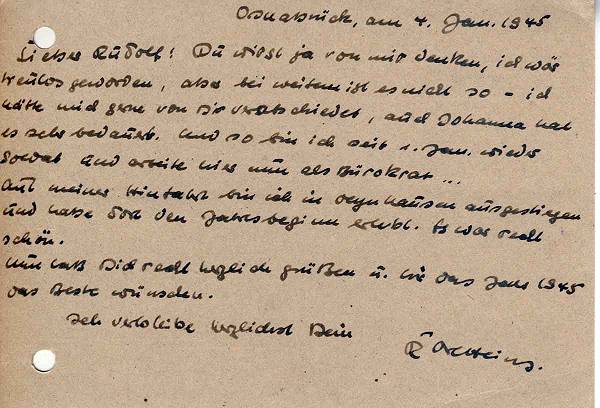 Osnabrück, am 4. Jan. 1945
Lieber Rudolf! Du wirst ja von mir denken, ich wär
treulos geworden, aber bei weitem ist es nicht so – ich
hätte mich gerne von Dir verabschiedet, auch Johanna hat
es sehr bedauert. Und so bin ich seit 1. Jan. wieder
Soldat und arbeite hier nun als Bürokrat ...
Auf meiner Hinfahrt bin ich in Oeynhausen ausgestiegen
und habe dort den Jahresbeginn erlebt. Es war recht
schön.
Nun laß Dich recht herzlich grüßen u. Dir das Jahr 1945
das Beste wünschen.
Ich verbleibe herzlichst Dein